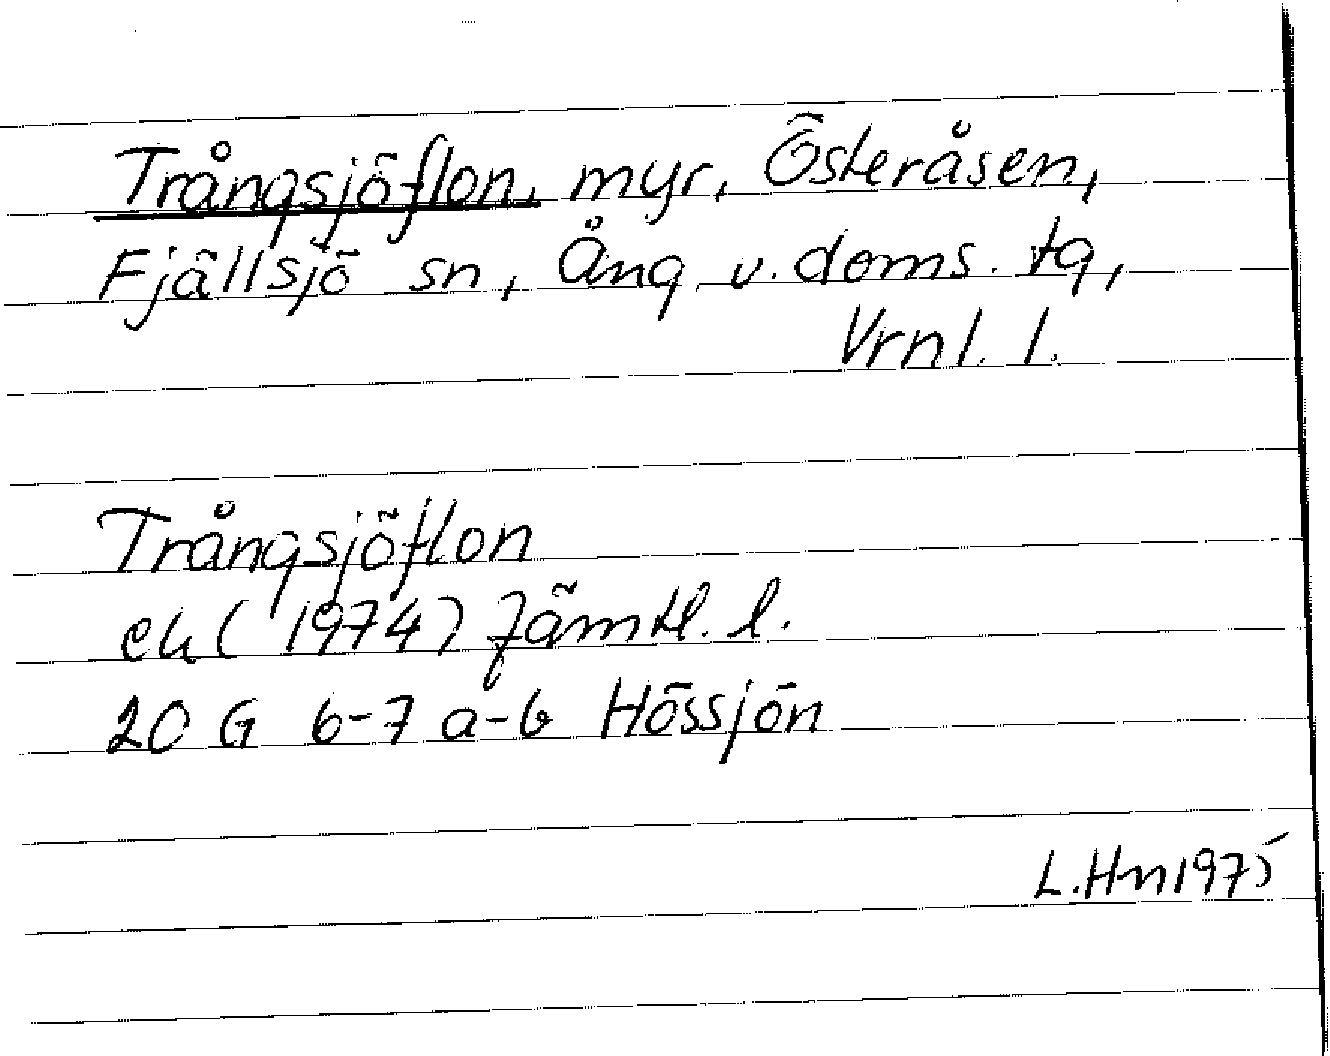 Trångsjöflon, myr, Österåsen,
Fjällsjö sn, Ång. v. doms. tg,
Vrnl. l.
Trångsjöflon
ek (1974) Jämtl. l.
20 G 6-7 a-b Hössjön
L.Hn1975